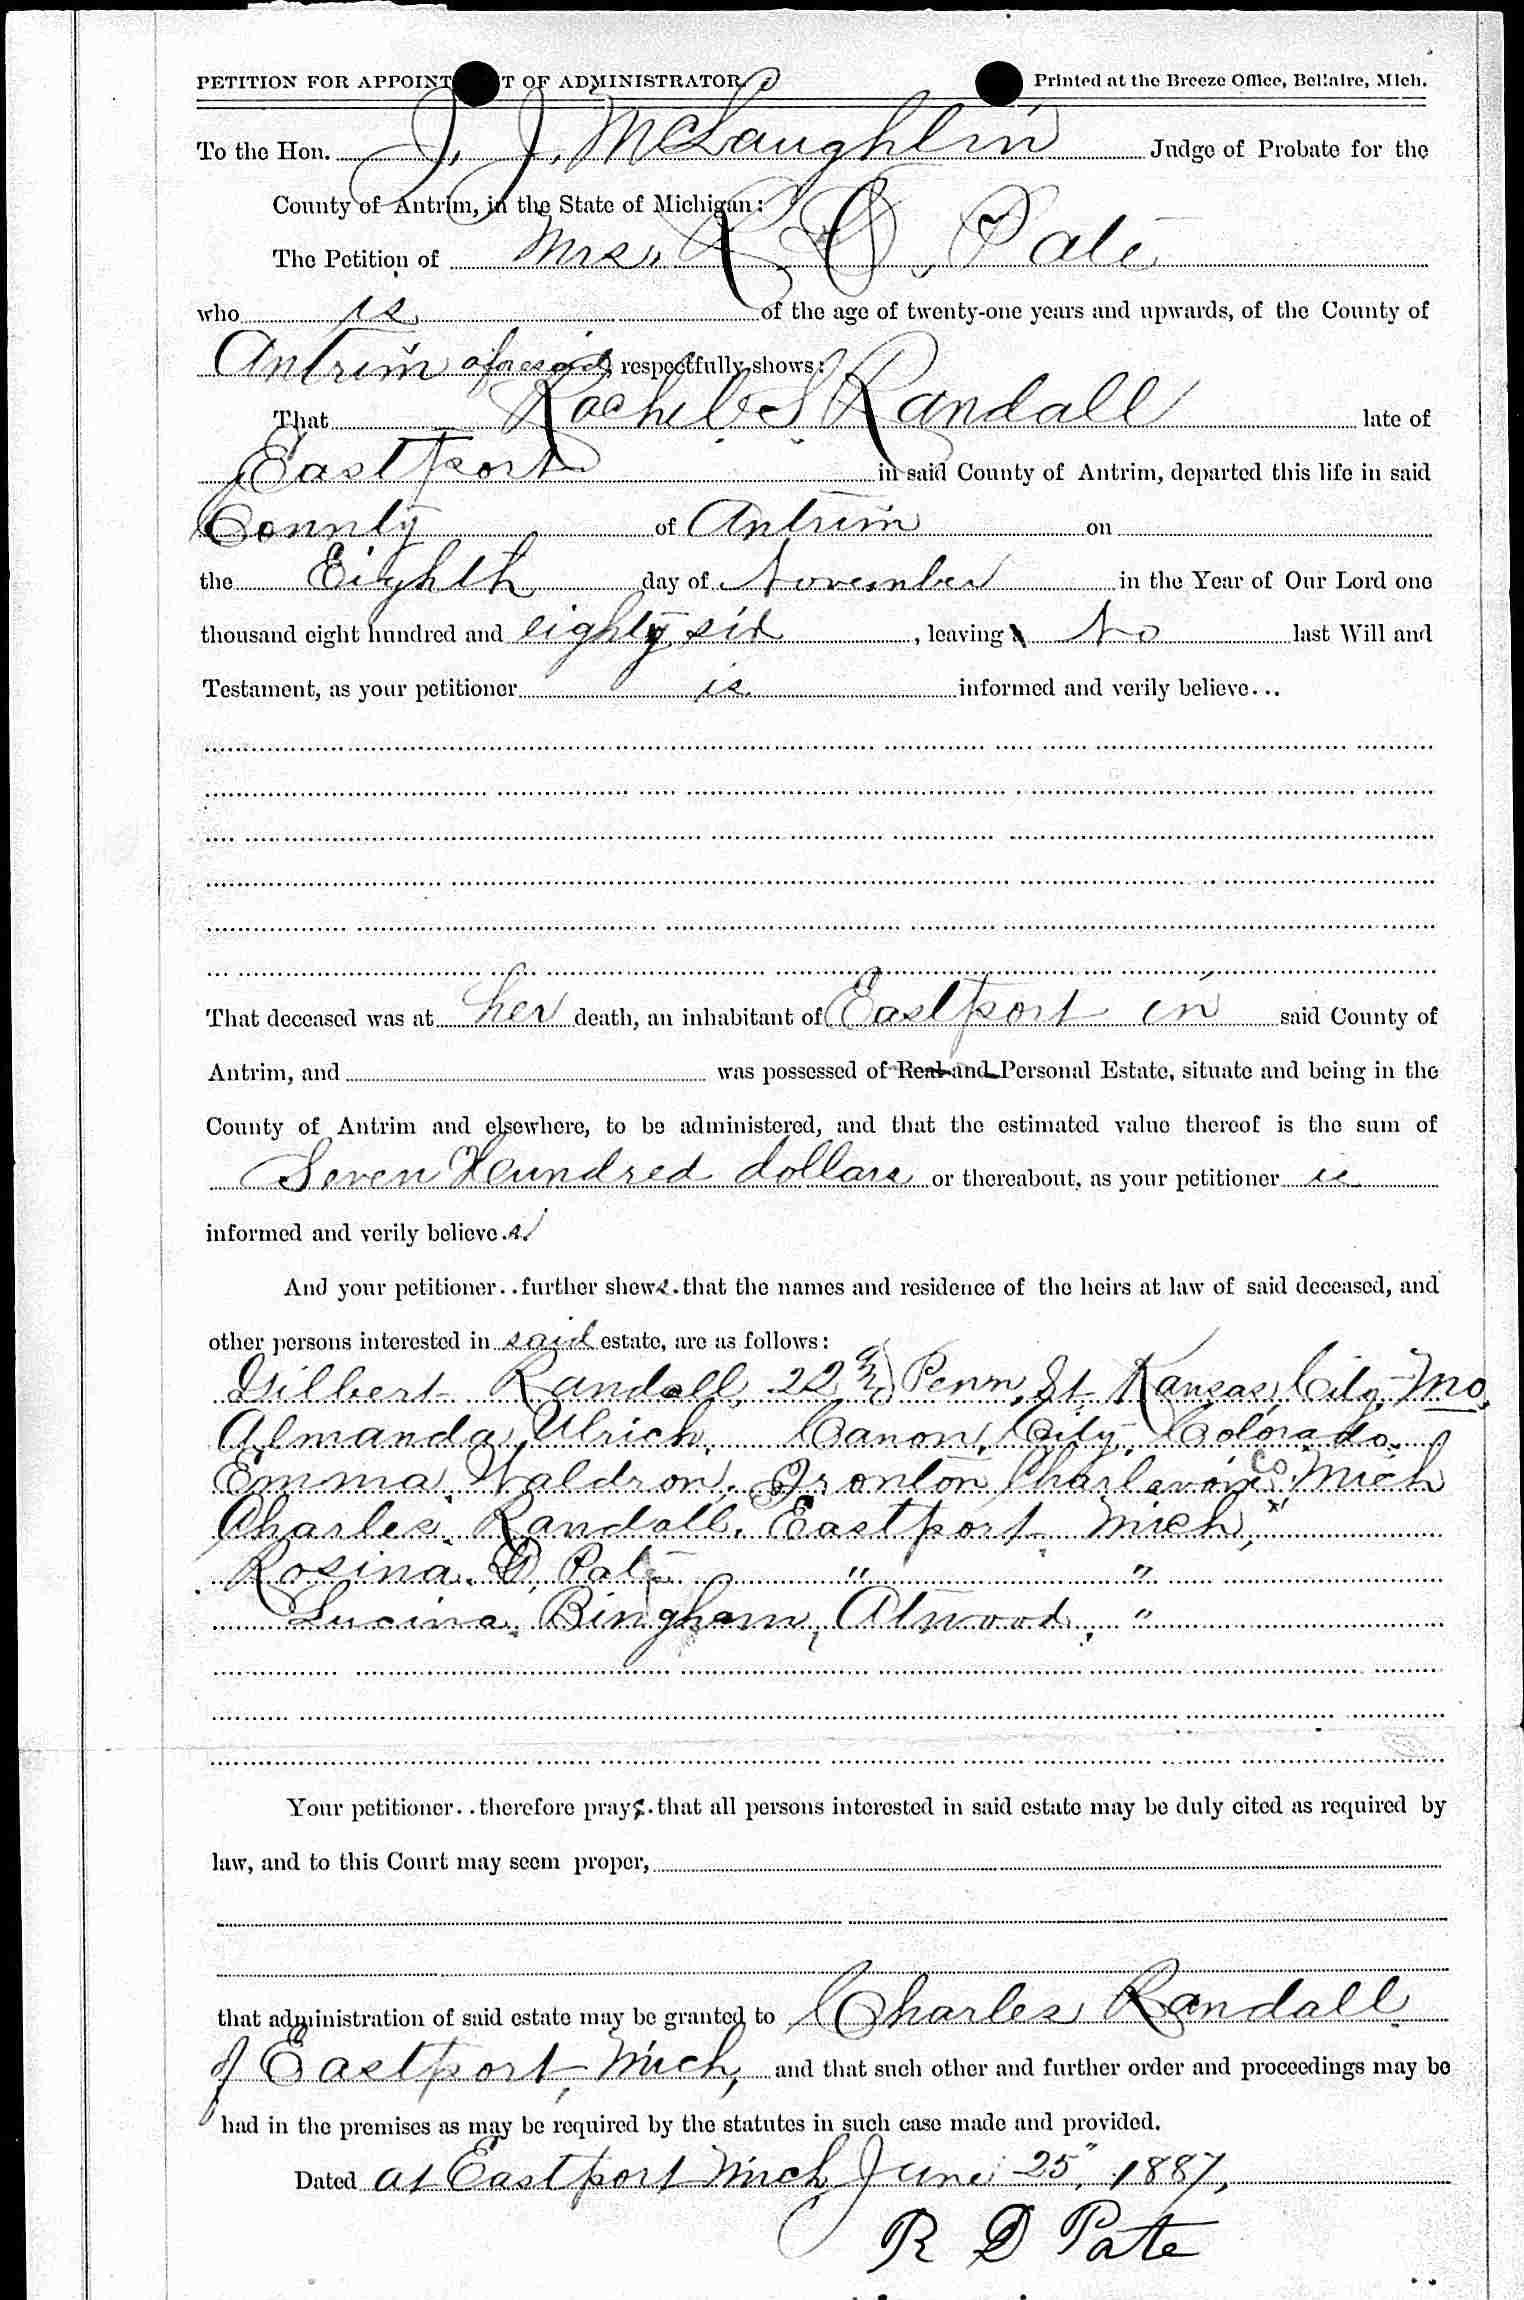 PETITION FOR APPOINT T OF ADMINISTRATOR. Printed at the Breeze Office, Bellaire, Mich.
To the Hon. J. J. McLaughlin Judge of Probate for the
County of Antrim, in the State of Michigan:
The Petition of Mrs. R. D. Pate
who is of the age of twenty-one years and upwards, of the County of
Antrim aforesaid respectfully shows:
That Rachel S Randall late of
Eastport in said County of Antrim, departed this life in said
County of Antrim on
the Eighth day of November in the Year of Our Lord one
thousand eight hundred and eighty six, leaving a No last Will and
Testament, as your petitioner is informed and verily believe...
That deceased was at her death, an inhabitant of Eastport in said County of
Antrim, and was possessed of Real and Personal Estate, situate and being in the
County of Antrim and elsewhere, to be administered, and that the estimated value thereof is the sum of
Seven Hundred dollars or thereabout, as your petitioner is
informed and verily believe.s.
And your petitioner..further shews.that the names and residence of the heirs at law of said deceased, and
other persons interested in said estate, are as follows:
Gilbert Randall, Penn, St. Kansas City Mo.
Almanda Ulrich. Canon, City, Colorado.
Emma Waldron. Ironton Charlevoix Co. Mich
Charles Randall. Eastport Mich,
Rosina. D. Pate " "
Lucina. Bingham, Atwood. "
Your petitioner..therefore prays.that all persons interested in said estate may be duly cited as required by
law, and to this Court may seem proper,
that administration of said estate may be granted to Charles Randall
of Eastport, Mich, and that such other and further order and proceedings may be
had in the premises as may be required by the statutes in such case made and provided.
Dated at Eastport Mich June 25", 1887,
R D Pate